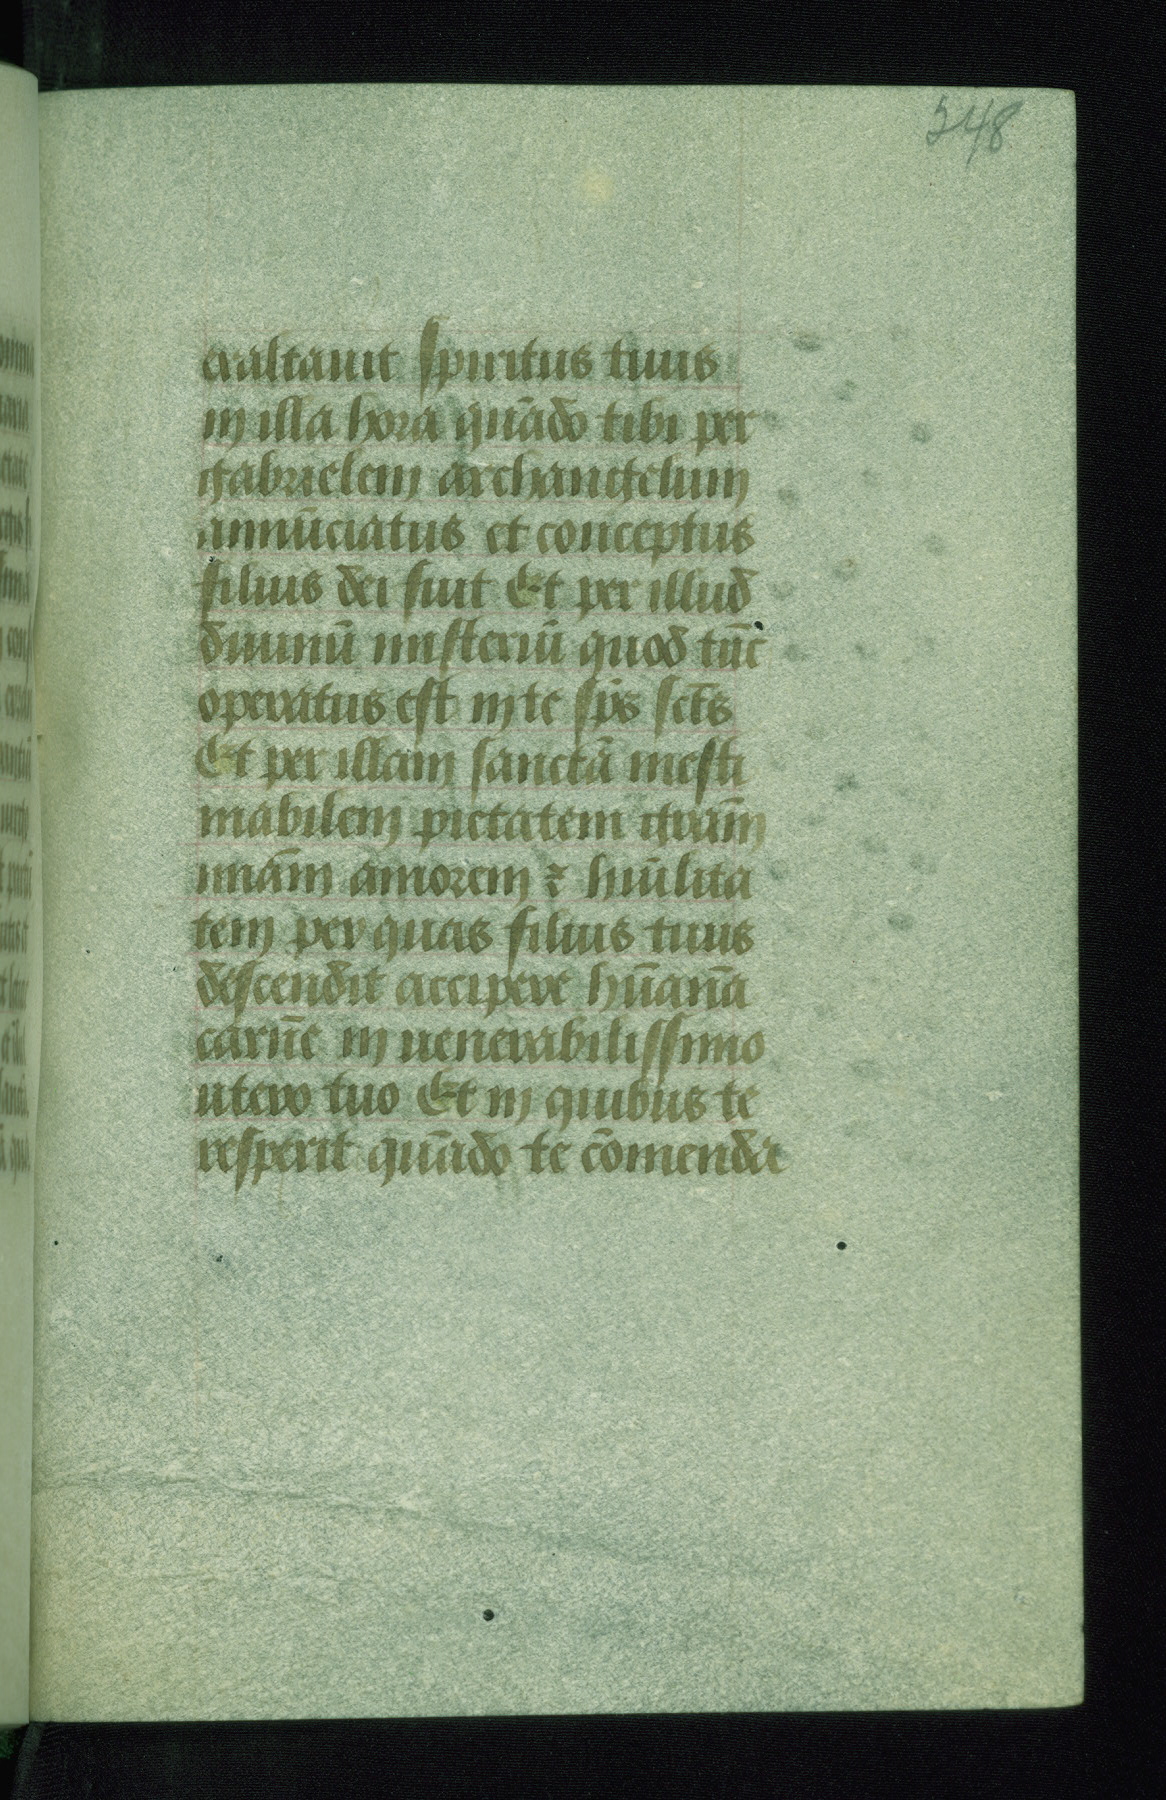 248
exaltauit spiritus tuus
in illa hora quãdo tibi per
gabrielem archangelum
annũciatus et conceptus
filius dei fuit Et per illud
diuinũ misteriũ quod tũc
operatus est in te sp̃s sct̃s
Et per illam sanctã inesti
mabilem pietatem gram̃
miam̃ amorem ꝛ hũilita
tem per quas filius tuus
descendit accipere hũanã
carnẽ in uenerabilissimo
utero tuo Et in quibus te
resperit quãdo te cõmenda